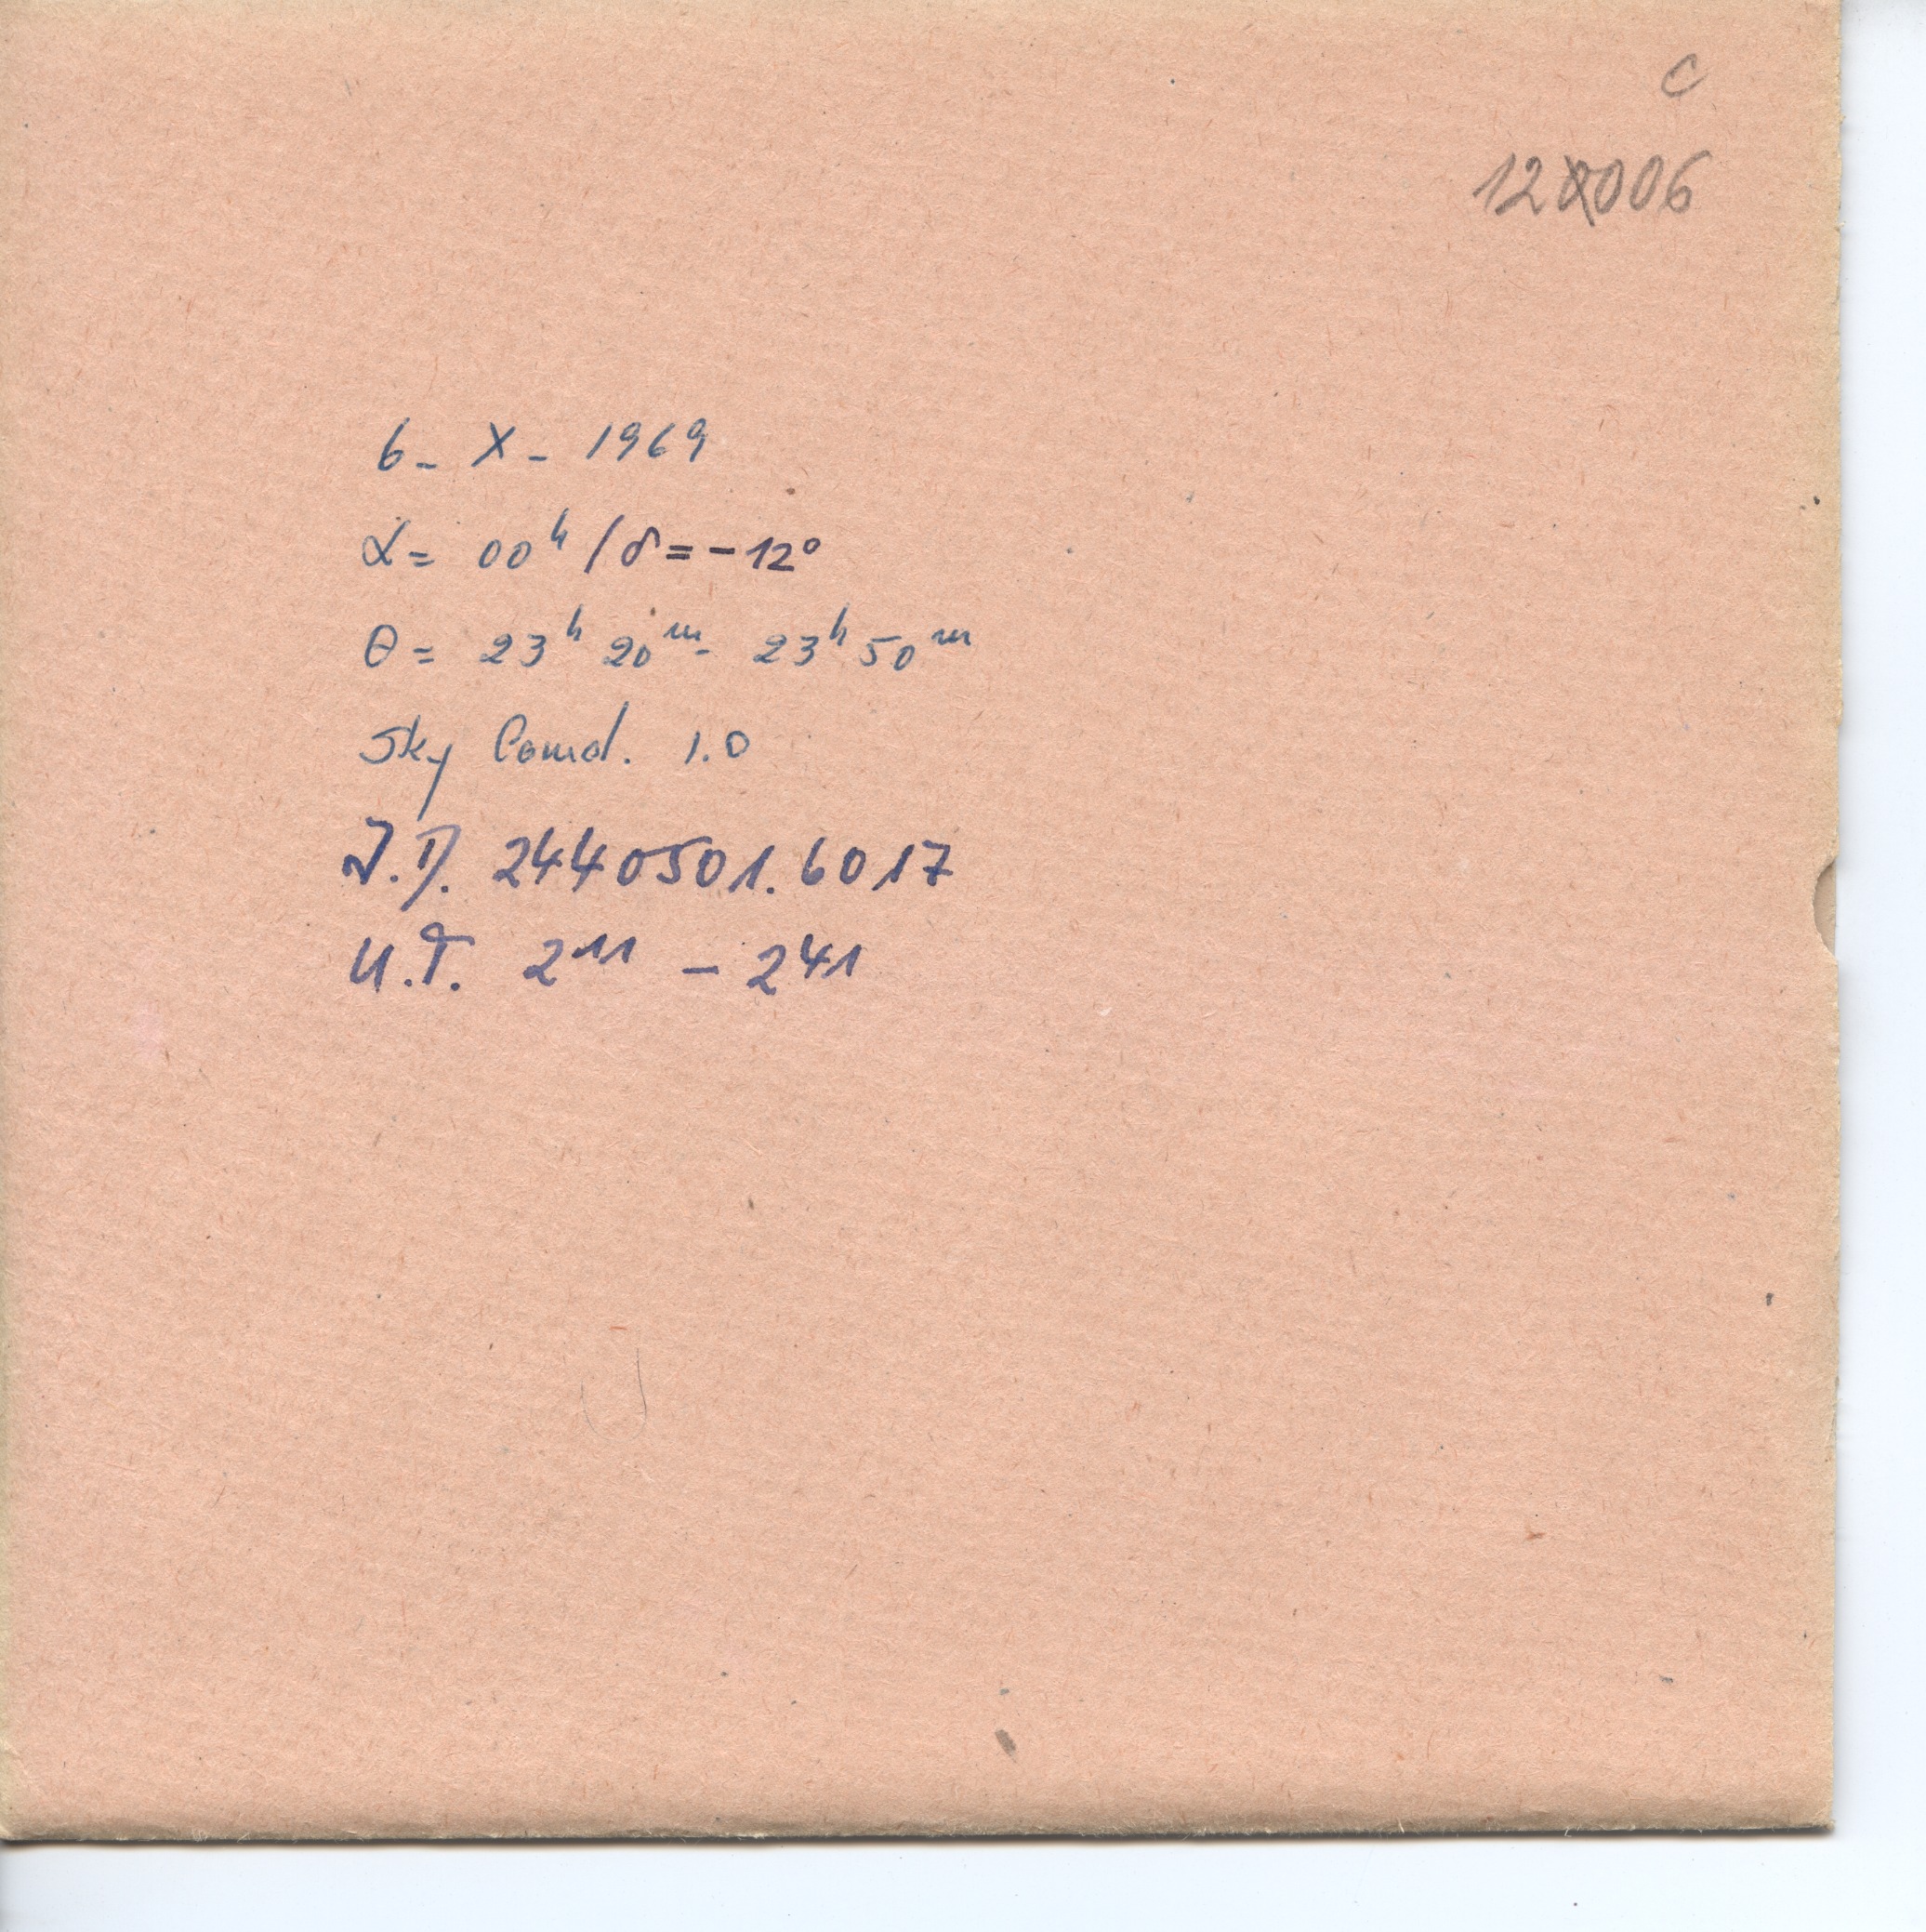 C
12006
6 - X - 1969
α = 00ʰ / δ = -12°
θ = 23ʰ 20ᵐ - 23ʰ 50ᵐ
Sky Cond. 1.0
J.D. 2440501.6017
U.T. 2¹¹ - 2⁴¹